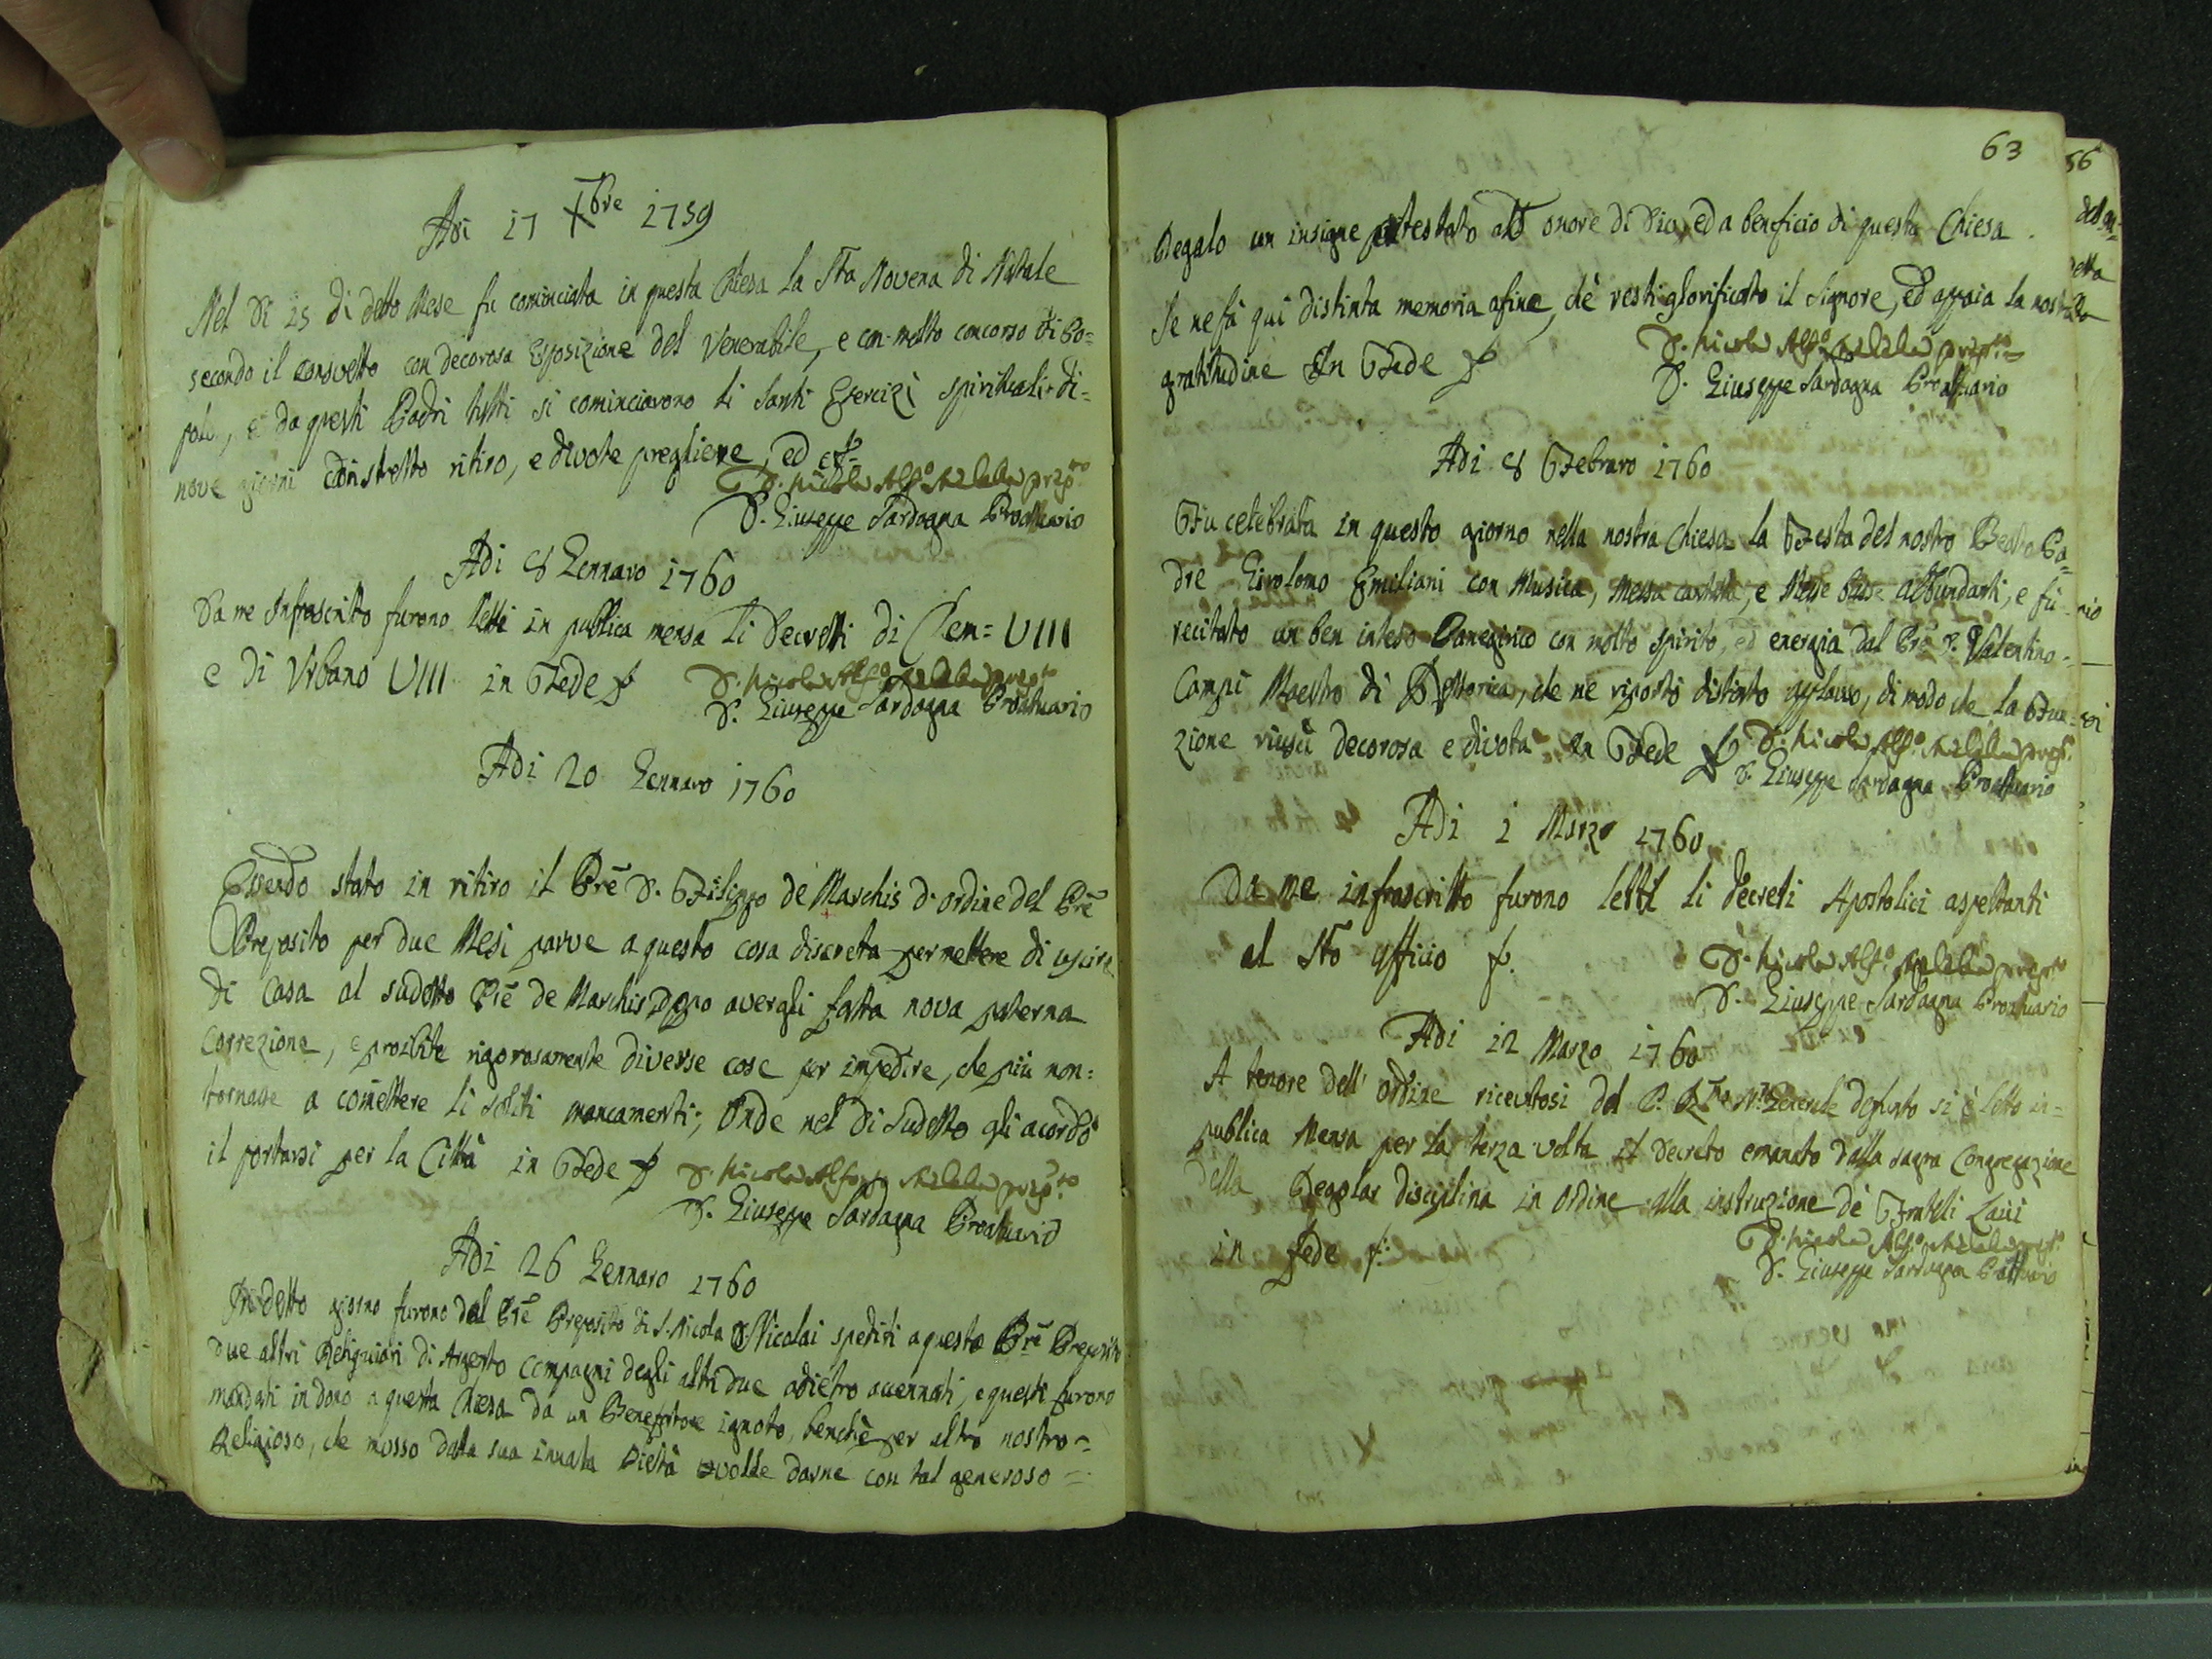 Adi 17 Xbre 1759
Nel Di 15 di detto Mese fu cominciata in questa Chiesa la Sta Novena di Natale
secondo il consueto con decorosa Esposizione del Venerabile, e con molto concorso di Po=
polo, e da questi Padri tutti si cominciavono li Santi Esercizi spirituali di
nove giorni con stretto ritiro, e divote preghiere, ed
D. Nicola Alfo prepto
D. Giuseppe Sardagna Proattuario
Adi 8 Gennaro 1760
Da me Infrascritto furono letti in publica mensa li Decretti di Clem= VIII
e di Vrbano VIII in Fede
D. Nicola Alfo prepto
D. Giuseppe Sardagna Proattuario
Adi 20 Gennaro 1760
Essendo stato in ritiro il Pre D. Filippo de Marchis d'ordine del Pre
Preposito per due Mesi parve a questo cosa discreta permettere di uscire
di Casa al sudetto Pre de Marchis dopo avergli fatta nova paterna
correzione, e proibite rigorosamente diverse cose per impedire, che più non=
tornasse a comettere li soliti mancamenti; Onde nel Di Sudetto gli acordò
il portarsi per la Città in Fede
D. Nicola Alfo prepto
D. Giuseppe Sardagna Proattuario
Adi 26 Gennaro 1760
In detto giorno furono dal Pre Preposito di S. Nicola D. Nicolai spediti a questo Pre Preposito
due altri Reliquiari di Argento compagni degli altri due adietro acennati, e questi furono
mandati in dono a questa Chiesa da un Benefatore ignoto, benchè per altro nostro=
Religioso, che mosso dalla sua innata Pietà volle darne con tal generoso=
63
56
Regalo un insigne attestato all' onore di Dio, ed a beneficio di questa Chiesa.
Se ne fà qui distinta memoria afine, chè resti glorificato il Signore, ed appaia la nostra
gratitudine In Fede
D. Nicola Alfo prepto
D. Giuseppe Sardagna Proattuario
Adi 8 Febraro 1760
Fu celebrata in questo giorno nella nostra Chiesa la Festa del nostro Beato Pa=
dre Girolomo Emiliani con Musica, Messa cantata, e Messe basse abbundanti, e fù
recitato un ben inteso Panegirico con molto spirito, ed energia dal Pre D. Valentino
Campi Maestro di Rettorica, che ne riportò distinto applauso, di modo che la Fun=
zione riuscì decorosa e divota In Fede
D. Nicola Alfo prepto
D. Giuseppe Sardagna Proattuario
Adi 1 Marzo 1760
Da me infrascritto furono letti li decreti Apostolici aspettanti
al Sto Officio
D. Nicola Alfo prepto
D. Giuseppe Sardagna Proattuario
Adi 12 Marzo 1760
A tenore dell' ordine ricevutosi dal P. Rmo Generale defunto si è letto in=
publica Mensa per la terza volta il decreto emanato dalla sagra Congregazione
della Regolar disciplina in ordine alla instruzione dè Fratelli Laici
in fede
D. Nicola Alfo prepto
D. Giuseppe Sardagna Proattuario